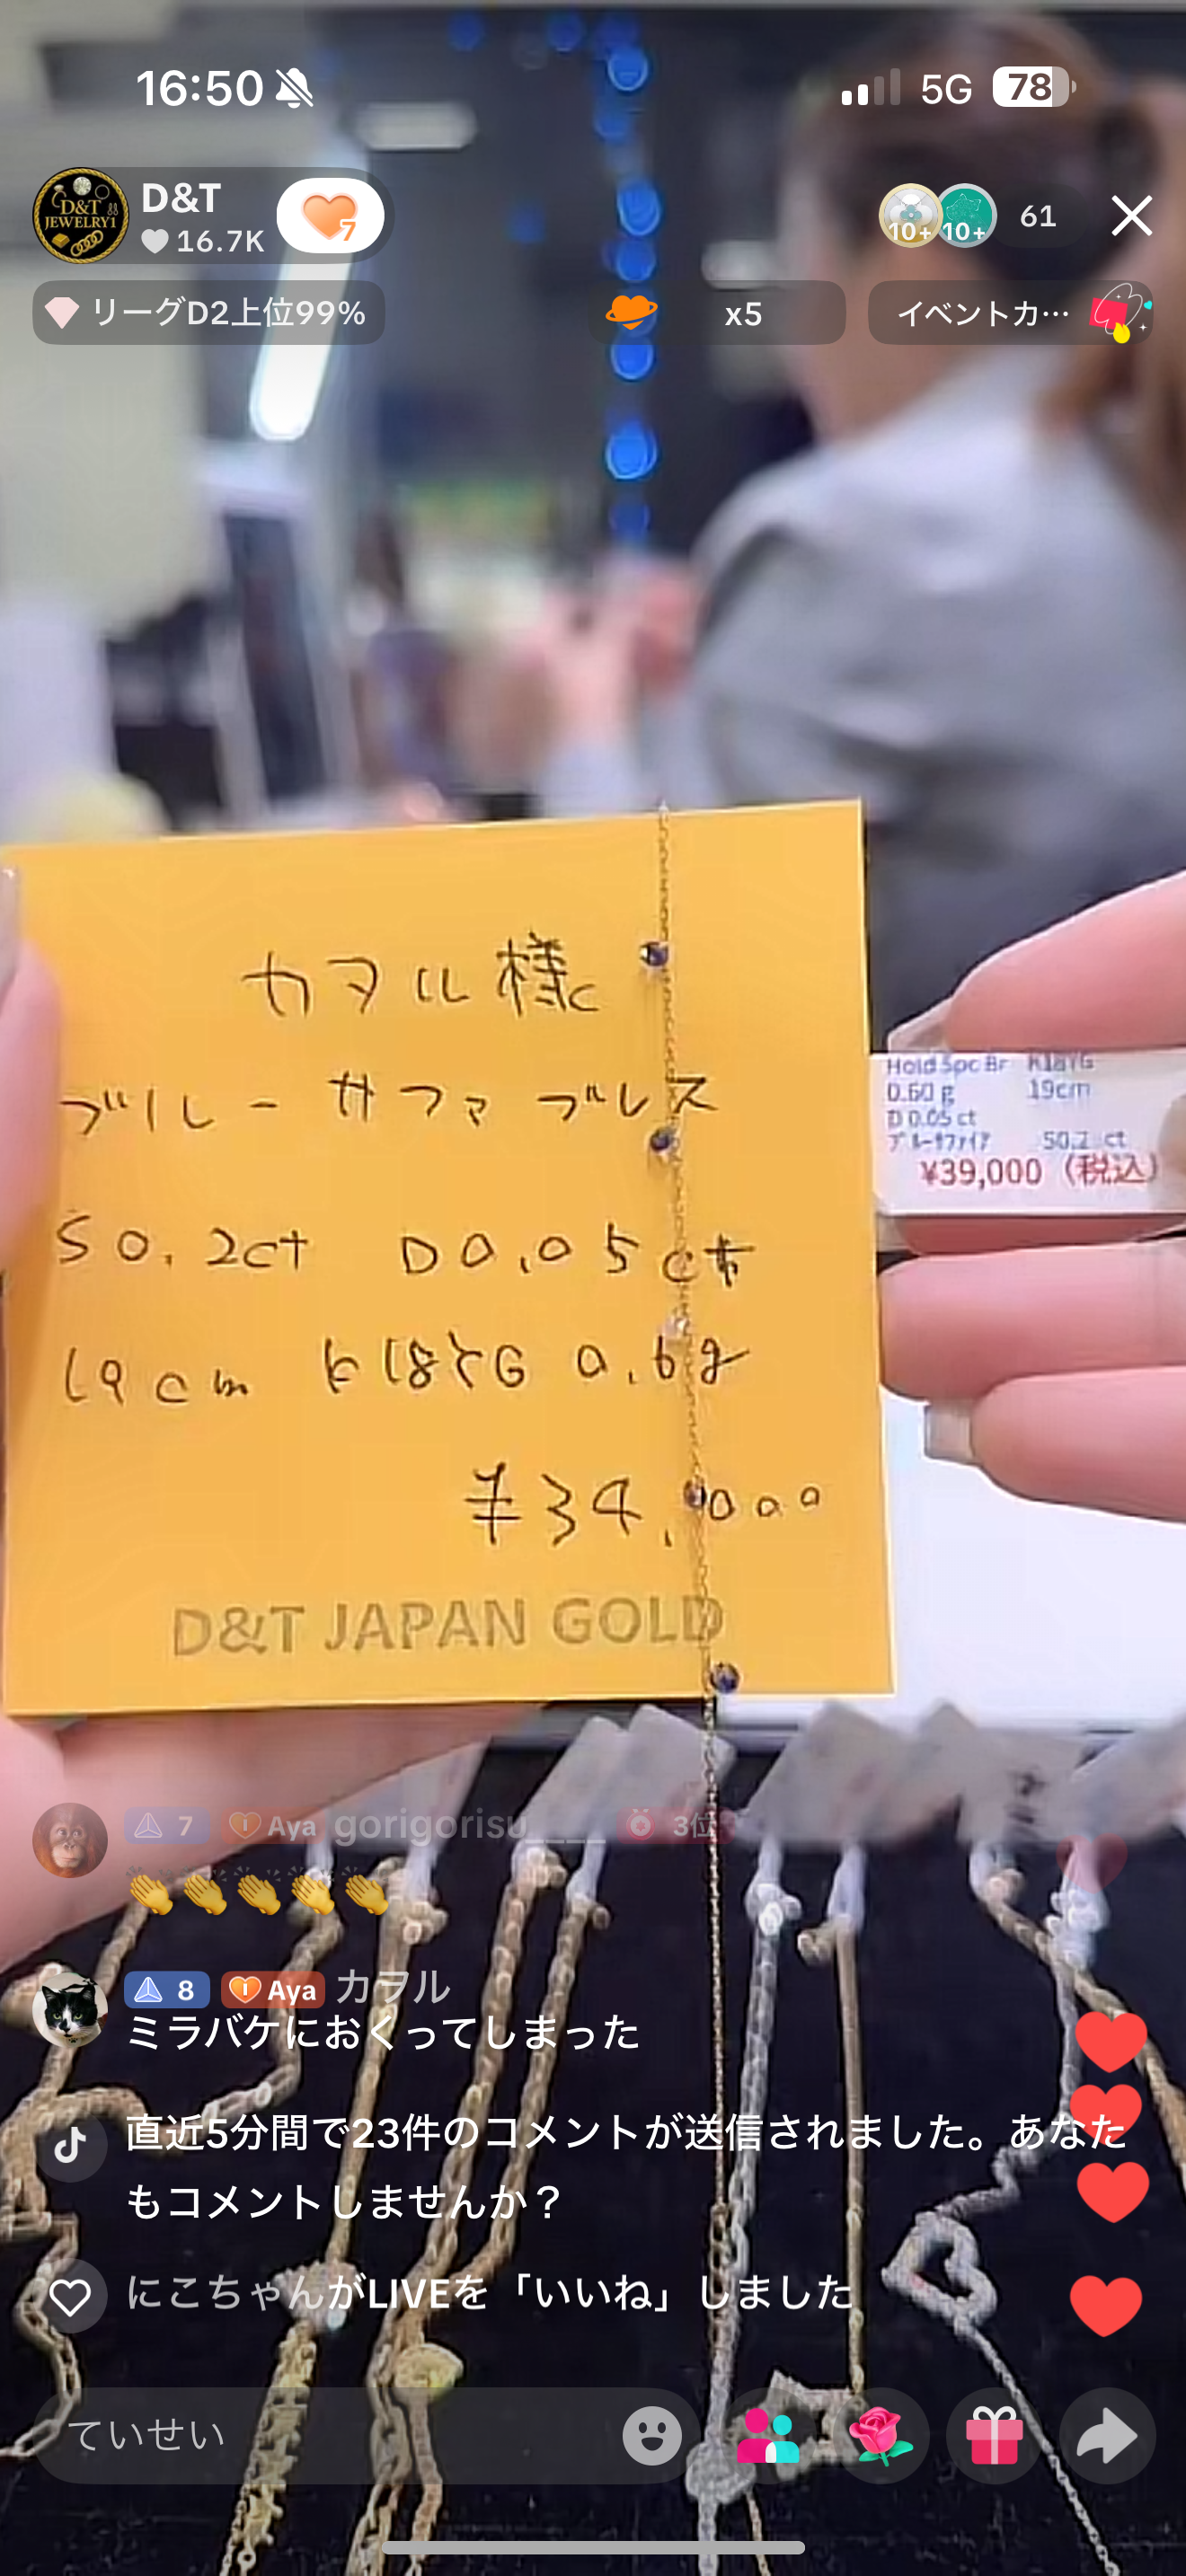 16:50
5G
78
D&T
D&T
JEWELRY1
16.7K
7
10+
10+
61
リーグD2上位99%
x5
イベントカ…
カヲル様
ブルーサファブレス
S0.2ct D0.05ct
19cm K18YG 0.6g
¥34,000
D&T JAPAN GOLD
Hold 5pc Br K18YG
0.60 g 19cm
D 0.05 ct
ブルーサファイア S0.2 ct
¥39,000(税込)
7 Aya gorigorisu____ 3位
👏👏👏👏👏
8 Aya カヲル
ミラバケにおくってしまった
直近5分間で23件のコメントが送信されました。あなた
もコメントしませんか？
にこちゃんがLIVEを「いいね」しました
ていせい